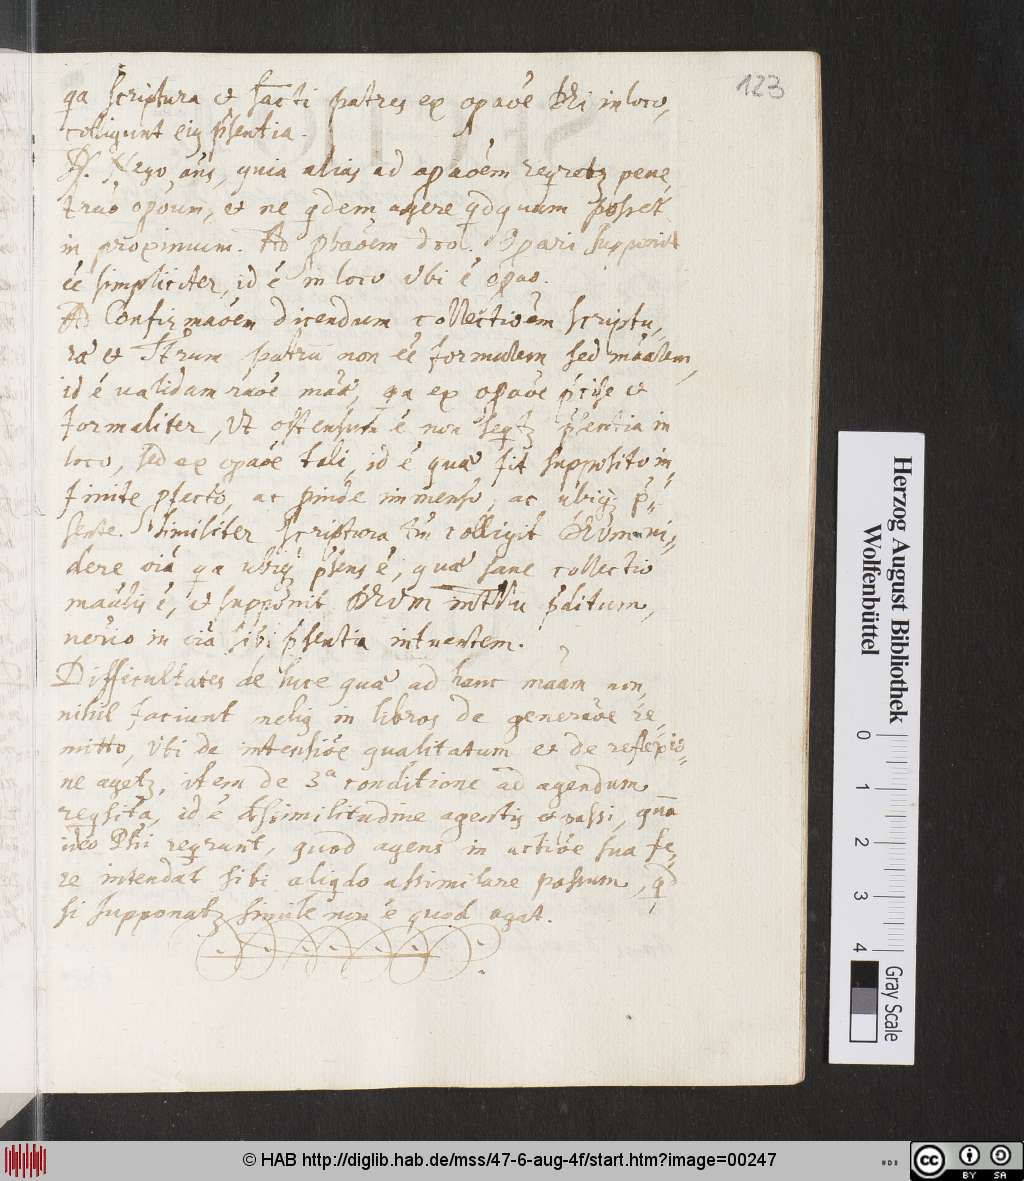 123
qa scriptura et sācti patres ex opaōe DEi in loco,
colligunt eiq pñsentia.
R. Nego añs, quia alias ad opaōem reqretʒ pene,
traō opōum, et ne qdem agere qdquam posset
in proximum. Ad pbaōem dcol. Opari supponit
ēē simpliciter, id ē in loco ubi ē opao.
Ad Confirmaōem dicendum collectiōem scriptu,
rā et Strum patrū non ēē formalem sed māalem,
id ē validam raōe māā, qa ex opaōe pcise et
formaliter, ut ostensum ē non seqtʒ pñsentia in
loco, sed ex opaōe tali, id ē quā fit supposito in,
finite pfecto, ac pinde immenso, ac ubiqʒ p,
sente. Similiter scriptura tm̄ colligit DEUM vi,
dere oiā qa ubiqʒ pñsens ē, quā sane collectio
māalis ē, et supponit DEUM intellu pditum,
nōrio in oiā sibi pñsentia intuentem.
Difficultates de luce quā ad hanc māam non,
nihil faciunt nelig in libros de generaōe re,
mitto, uti de intensiōe qualitatum et de reflexio,
ne agetʒ, item de 3ᵃ conditione ad agendum
reqsita, id ē dsimilitudine agentis et passi, quā
ideo Phi reqrunt, quod agens in actiōe sua fe,
re intendat sibi aliqdo assimilare passum, qd
si supponatʒ simile non ē quod agat.
Herzog August Bibliothek
Wolfenbüttel
0 1 2 3 4
Gray Scale
© HAB http://diglib.hab.de/mss/47-6-aug-4f/start.htm?image=00247
cc BY SA